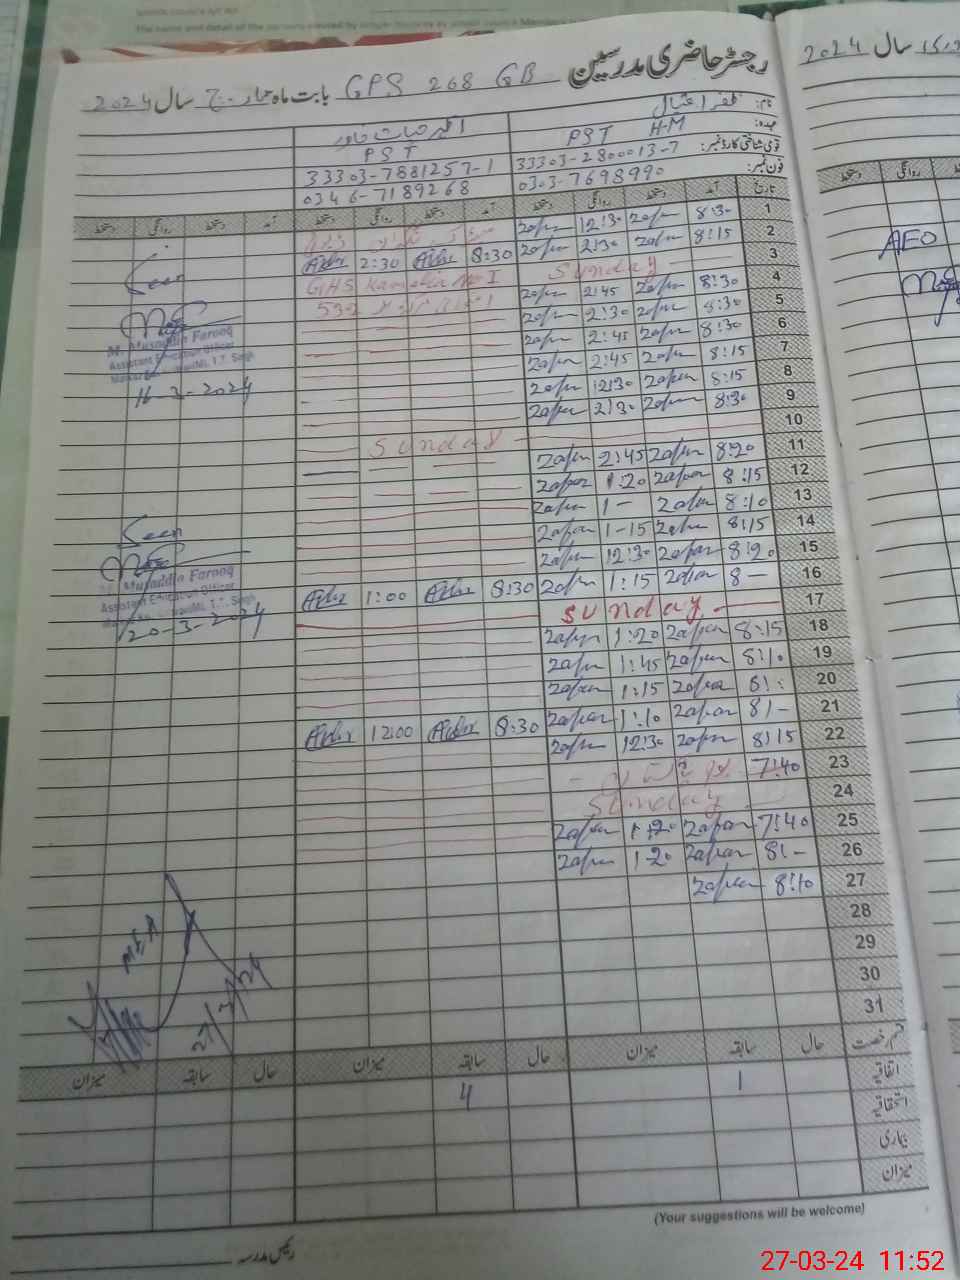 رجسٹر حاضری مدرسین GPS 268 GB بابت ماہ مارچ سال 2024
سال 2024
نام: ظفر اقبال
اظہر حیات خاور
عہدہ: PST H-M
PST
قومی شناختی کارڈ نمبر: 33303-2800013-7
33303-7881257-1
فون نمبر: 0303-7698990
0346-7189268
تاریخ آمد دستخط روانگی دستخط آمد دستخط روانگی دستخط آمد دستخط روانگی دستخط
1 8:30 Zafar 12:30 Zafar
2 8:15 Zafar 2:30 Zafar 8:30 Azhr 2:30 Azhr
3 Sunday GHS Kamalia No I
4 8:30 Zafar 2:45 Zafar
5 8:30 Zafar 2:30 Zafar
6 8:30 Zafar 2:45 Zafar
7 8:15 Zafar 2:45 Zafar
8 8:15 Zafar 12:30 Zafar
9 8:30 Zafar 2:30 Zafar
10 Sunday
11 8:20 Zafar 2:45 Zafar
12 8:15 Zafar 1:20 Zafar
13 8:10 Zafar 1- Zafar
14 8:15 Zafar 1-15 Zafar
15 8:20 Zafar 12:30 Zafar
16 8- Zafar 1:15 Zafar 8:30 Azhr 1:00 Azhr
17 Sunday
18 8:15 Zafar 1:20 Zafar
19 8:10 Zafar 1:45 Zafar
20 8: Zafar 1:15 Zafar
21 8:- Zafar 1:10 Zafar 8:30 Azhr 12:00 Azhr
22 8:15 Zafar 12:30 Zafar
23 7:40
24 Sunday
25 7:40 Zafar 1:20 Zafar
26 8:- Zafar 1-20 Zafar
27 8:10 Zafar
28
29
30
31
Seen
M. Musaddia Farooq
Assistant Education Officer
16-3-2024
Seen
M. Musaddia Farooq
Assistant Education Officer
20-3-2024
MEA
27/3/24
AEO
قسم رخصت حال سابقہ میزان حال سابقہ میزان حال سابقہ میزان
اتفاقیہ 1 4
استحقاقیہ
بیماری
میزان
(Your suggestions will be welcome)
رئیس مدرسہ
27-03-24 11:52